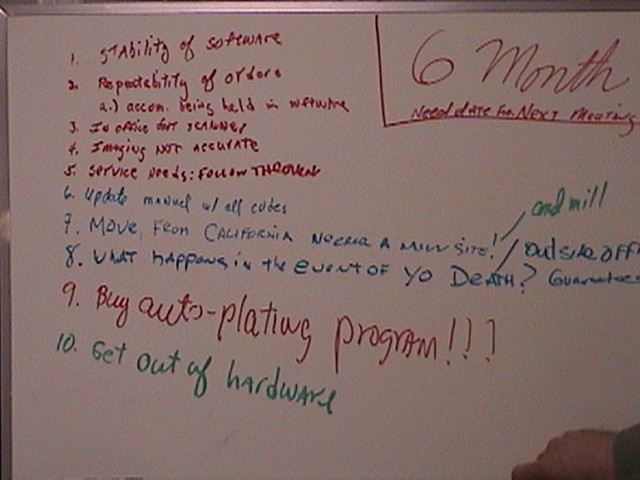 6 Month
Need date for Next Meeting
1. Stability of software
2. Repeatability of orders
a.) accom. being held in software
3. In office
4. Imaging NOT accurate
5. Service Needs: Follow Through
6. Update manual w/ all codes
and mill
7. Move from California nearer a mill site!
Outside offi
8. What happens in the event of yo Death? Guarantees
9. Buy auto-plating program!!!
10. Get out of hardware